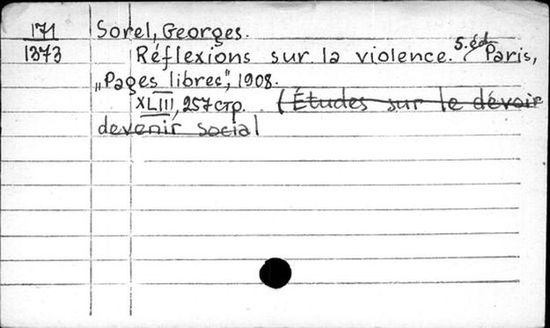 171 Sorel, Georges.
1373 Réflexions sur la violence. 5. éd. Paris,
„Pages libres", 1908.
XLIII, 257 стр. (Études sur le dévoir
devenir social